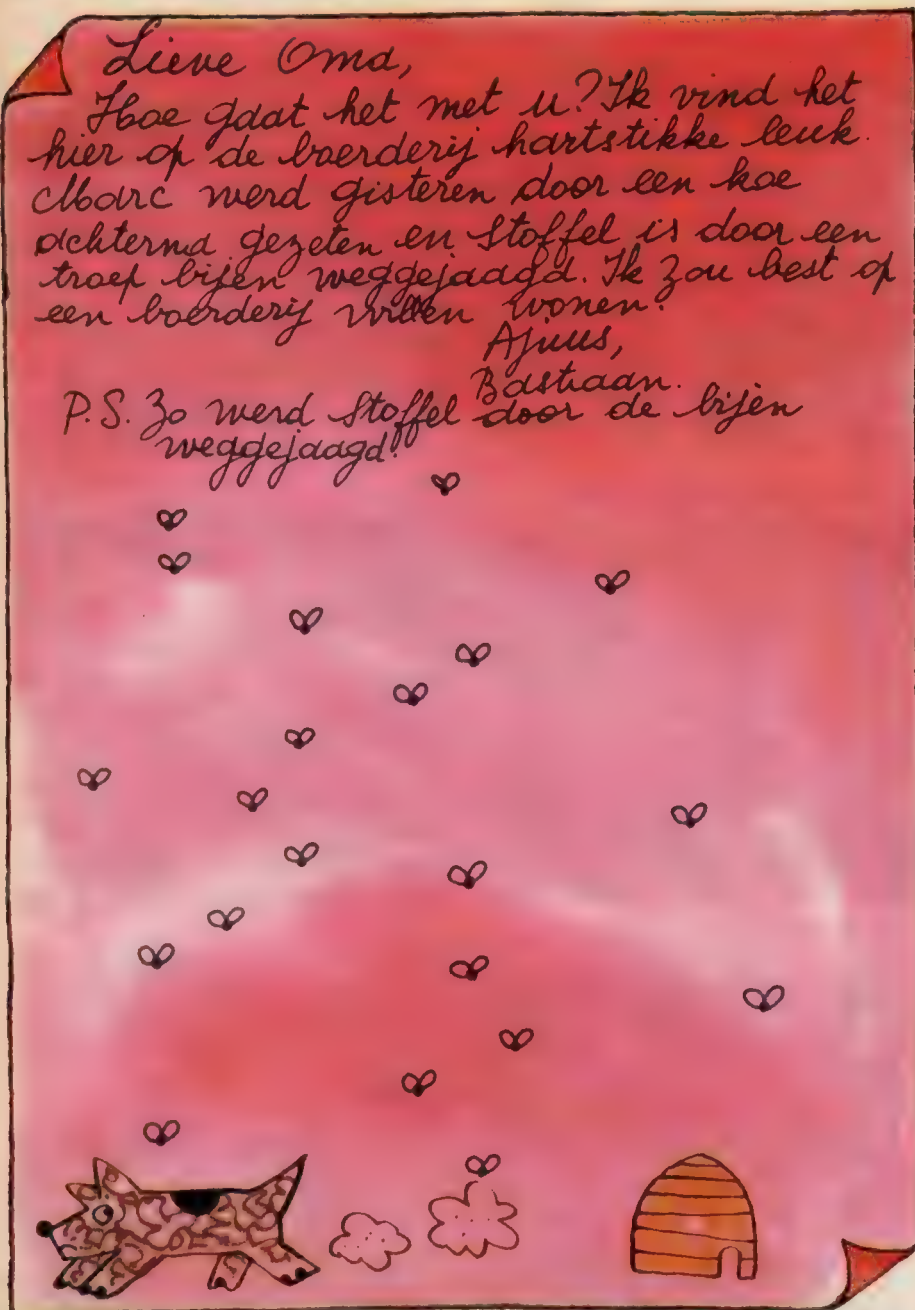 Lieve Oma,
Hoe gaat het met u? Ik vind het
hier op de boerderij hartstikke leuk.
Marc werd gisteren door een koe
achterna gezeten en Stoffel is door een
troep bijen weggejaagd. Ik zou best op
een boerderij willen wonen.
Ajuus,
Bastiaan.
P.S. Zo werd Stoffel door de bijen
weggejaagd!